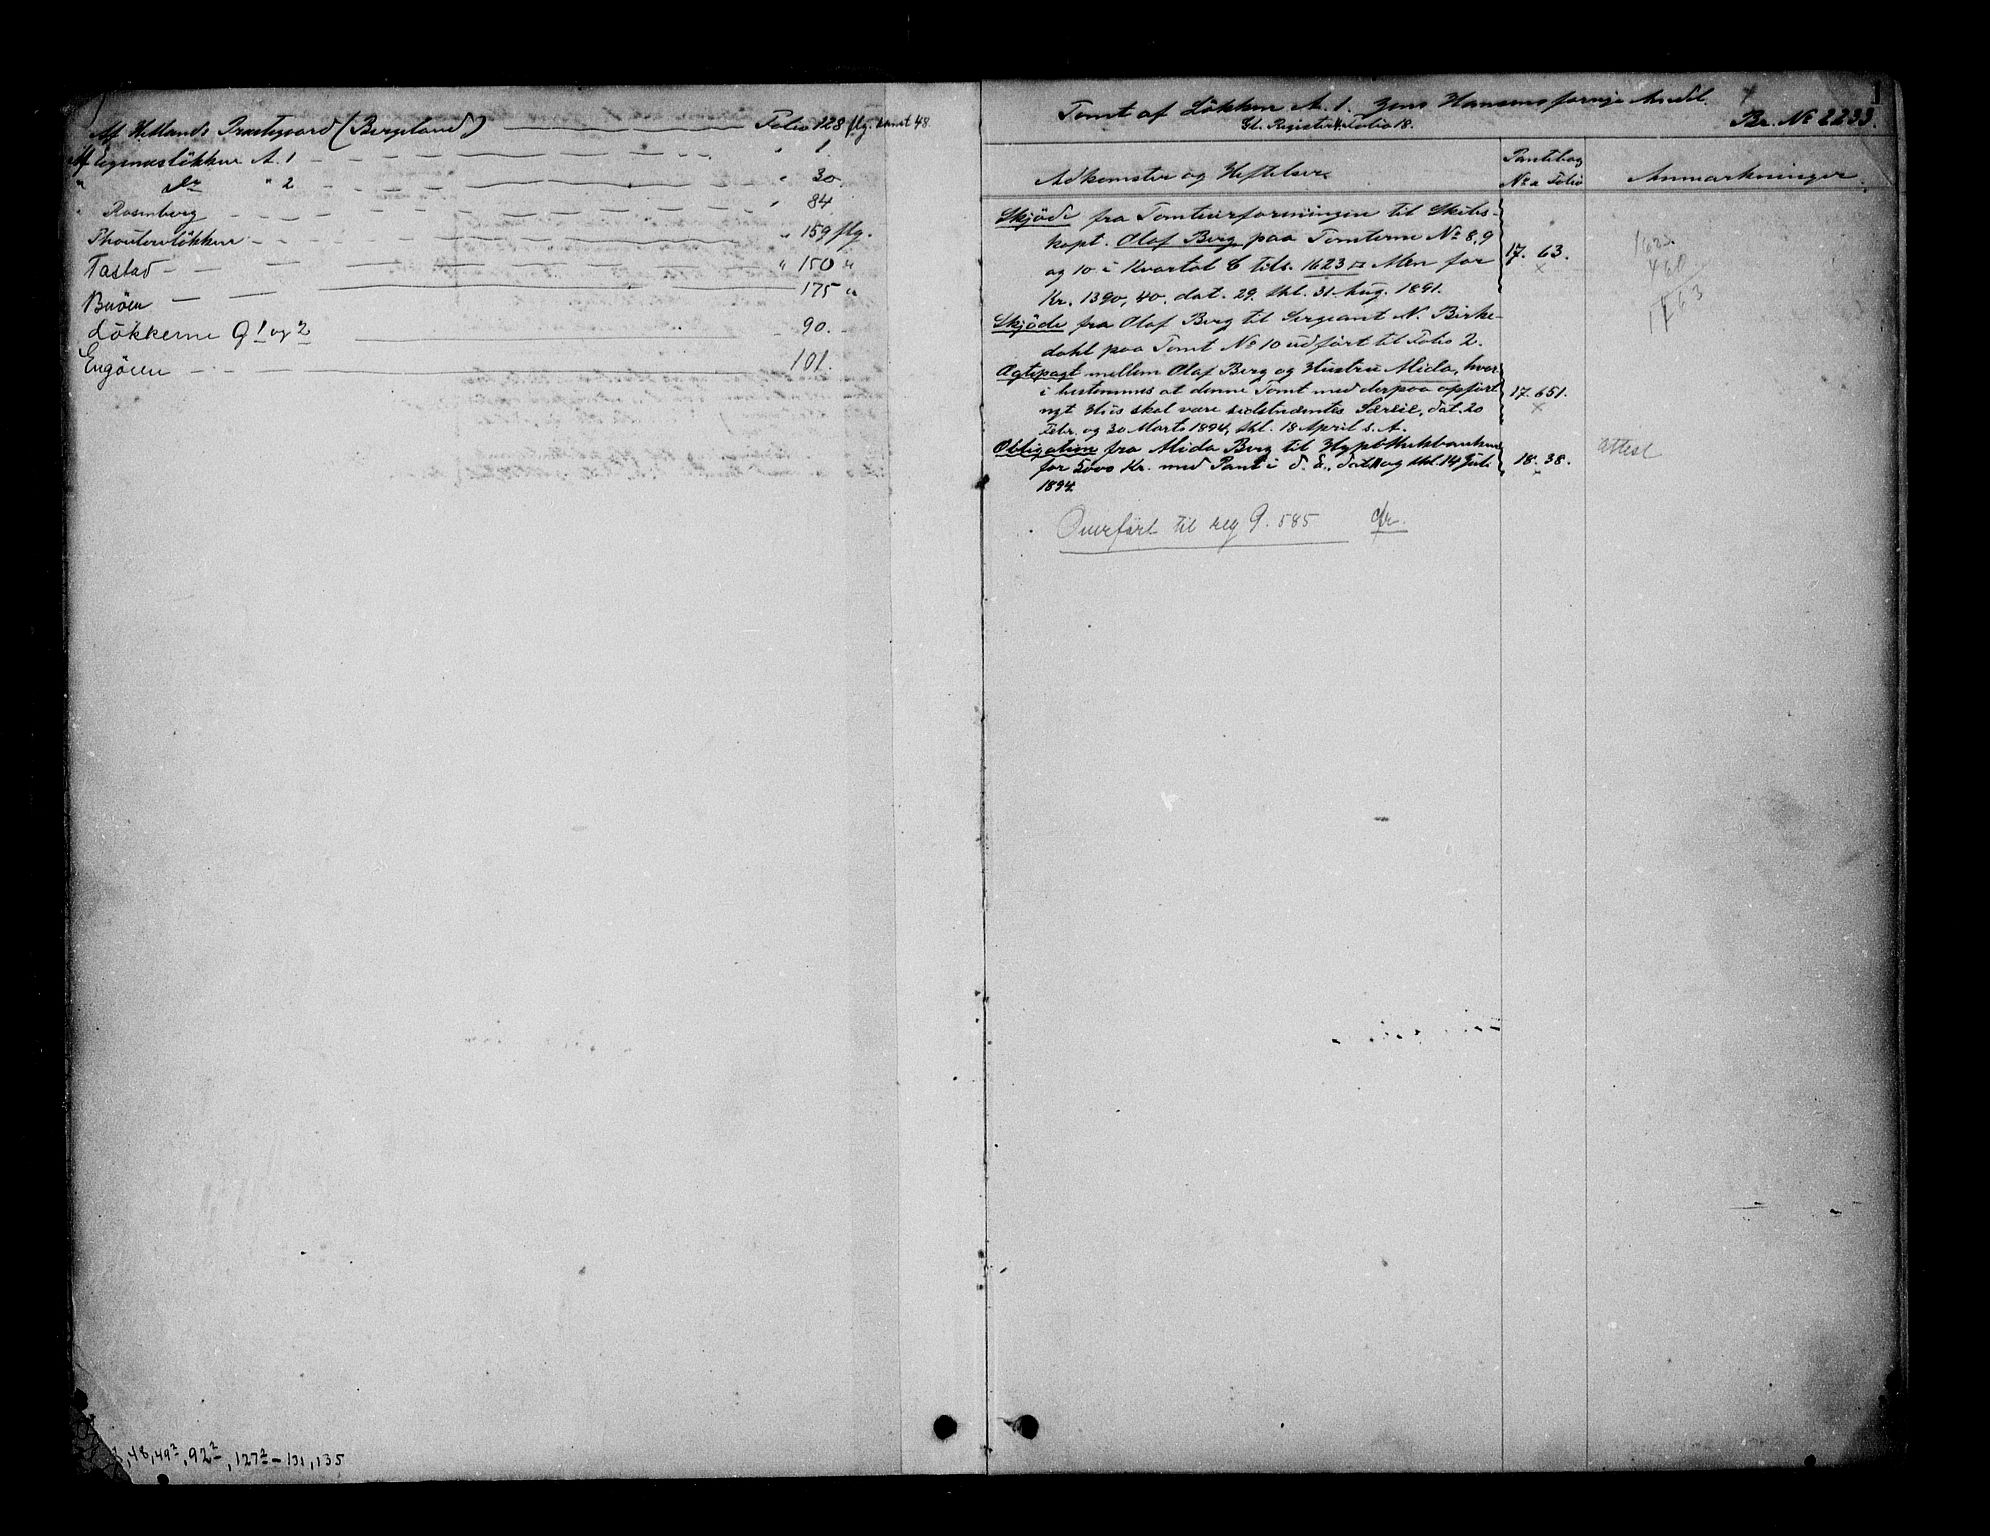 Af Hetlands Præstegaard (Bergeland) Folio 128 flg. samt 48
Af Egenæsløkken A. 1 " 1
" Do " 2 " 30
" Rosenberg " 84
Løkken " 159 flg.
Tastad " 150 "
Buøen 175 "
Løkkerne G 1 og 2 90.
Engøien 101.
48, 49², 92², 127² - 131, 135
1
Tomt af Løkken A. 1. Jens Hansens forrige Andel.
Gl. Register 4 Folio 18.
Br. No 2233.
Adkomster og Heftelser.
Pantebog
No a Folio
Anmærkninger.
Skjøde fra Tomteierforeningen til Skibs-
kapt. Olaf Berg paa Tomterne No 8, 9
og 10 i Kvartal C tils. 1623 □ Alen for
Kr. 1390,40. dat. 29. thl. 31 Aug. 1891.
17. 63.
Skjøde fra Olaf Berg til Sergeant N. Birke-
dahl paa Tomt No 10 udført til Folio 2.
Ægtepagt mellem Olaf Berg og Hustru Alida, hvor
i bestemmes at denne Tomt med derpaa opført
nyt Hus skal være sidstnævntes Særeie, dat. 20
Febr. og 30 Marts 1894, thl. 18 April s. A.
17. 651.
Obligation fra Alida Berg til Hypothekbanken
for 5000 Kr. med Pant i d. E., dat. og thl. 14 Juli
1894.
18. 38.
Attest
Overført til reg 9. 585